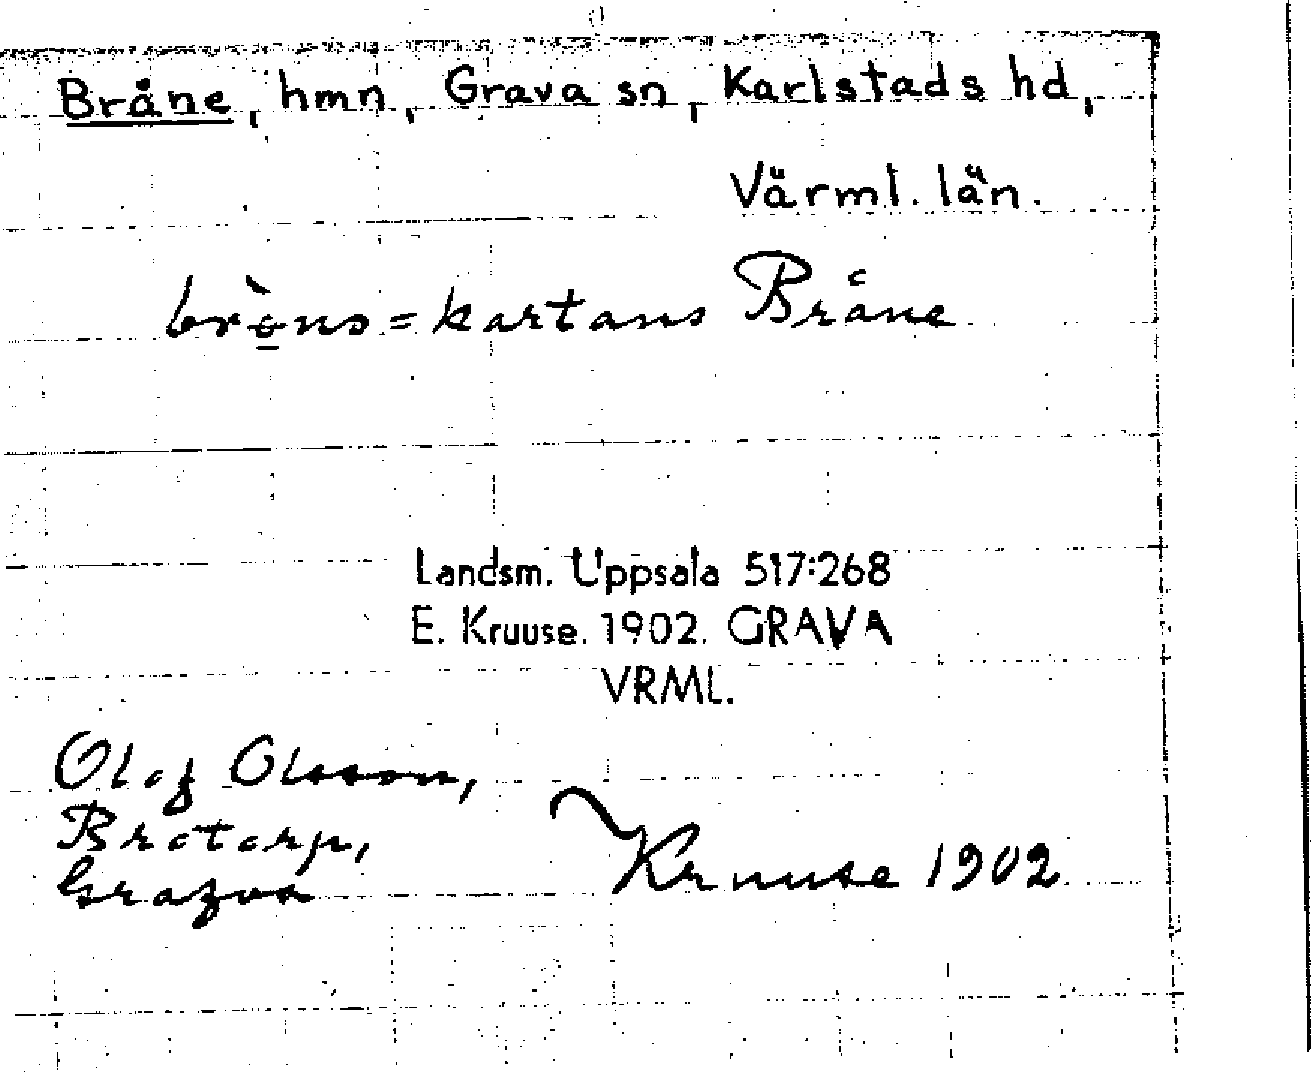 Bråne, hmn, Grava sn, Karlstads hd,
Värml. län.
= kartans Bråne
Landsm. Uppsala 517:268
E. Kruuse. 1902. GRAVA
VRML.
Olof Olsson,
Brotorp,
Grafva
Kruuse 1902